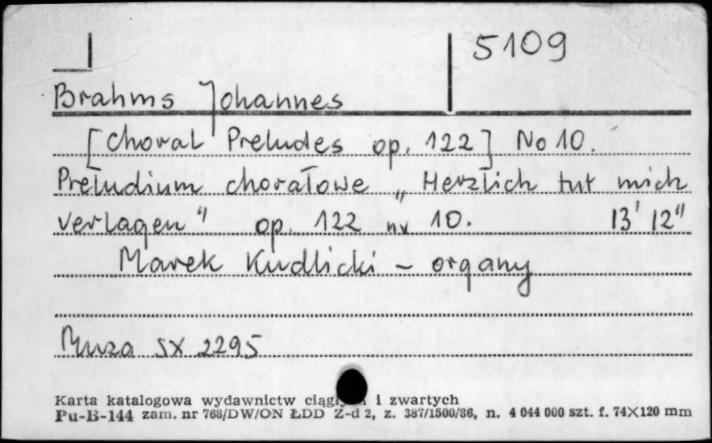 5109
Brahms Johannes
[Choral Preludes op. 122] No 10.
Preludium chorałowe „Herzlich tut mich
verlagen" op. 122 nr 10. 13' 12"
Marek Kudlicki - organy
Muza SX 2295
Karta katalogowa wydawnictw ciągłych i zwartych
Pu-B-144 zam. nr 768/DW/ON ŁDD Z-d 2, z. 387/1500/86, n. 4 044 000 szt. f. 74X120 mm